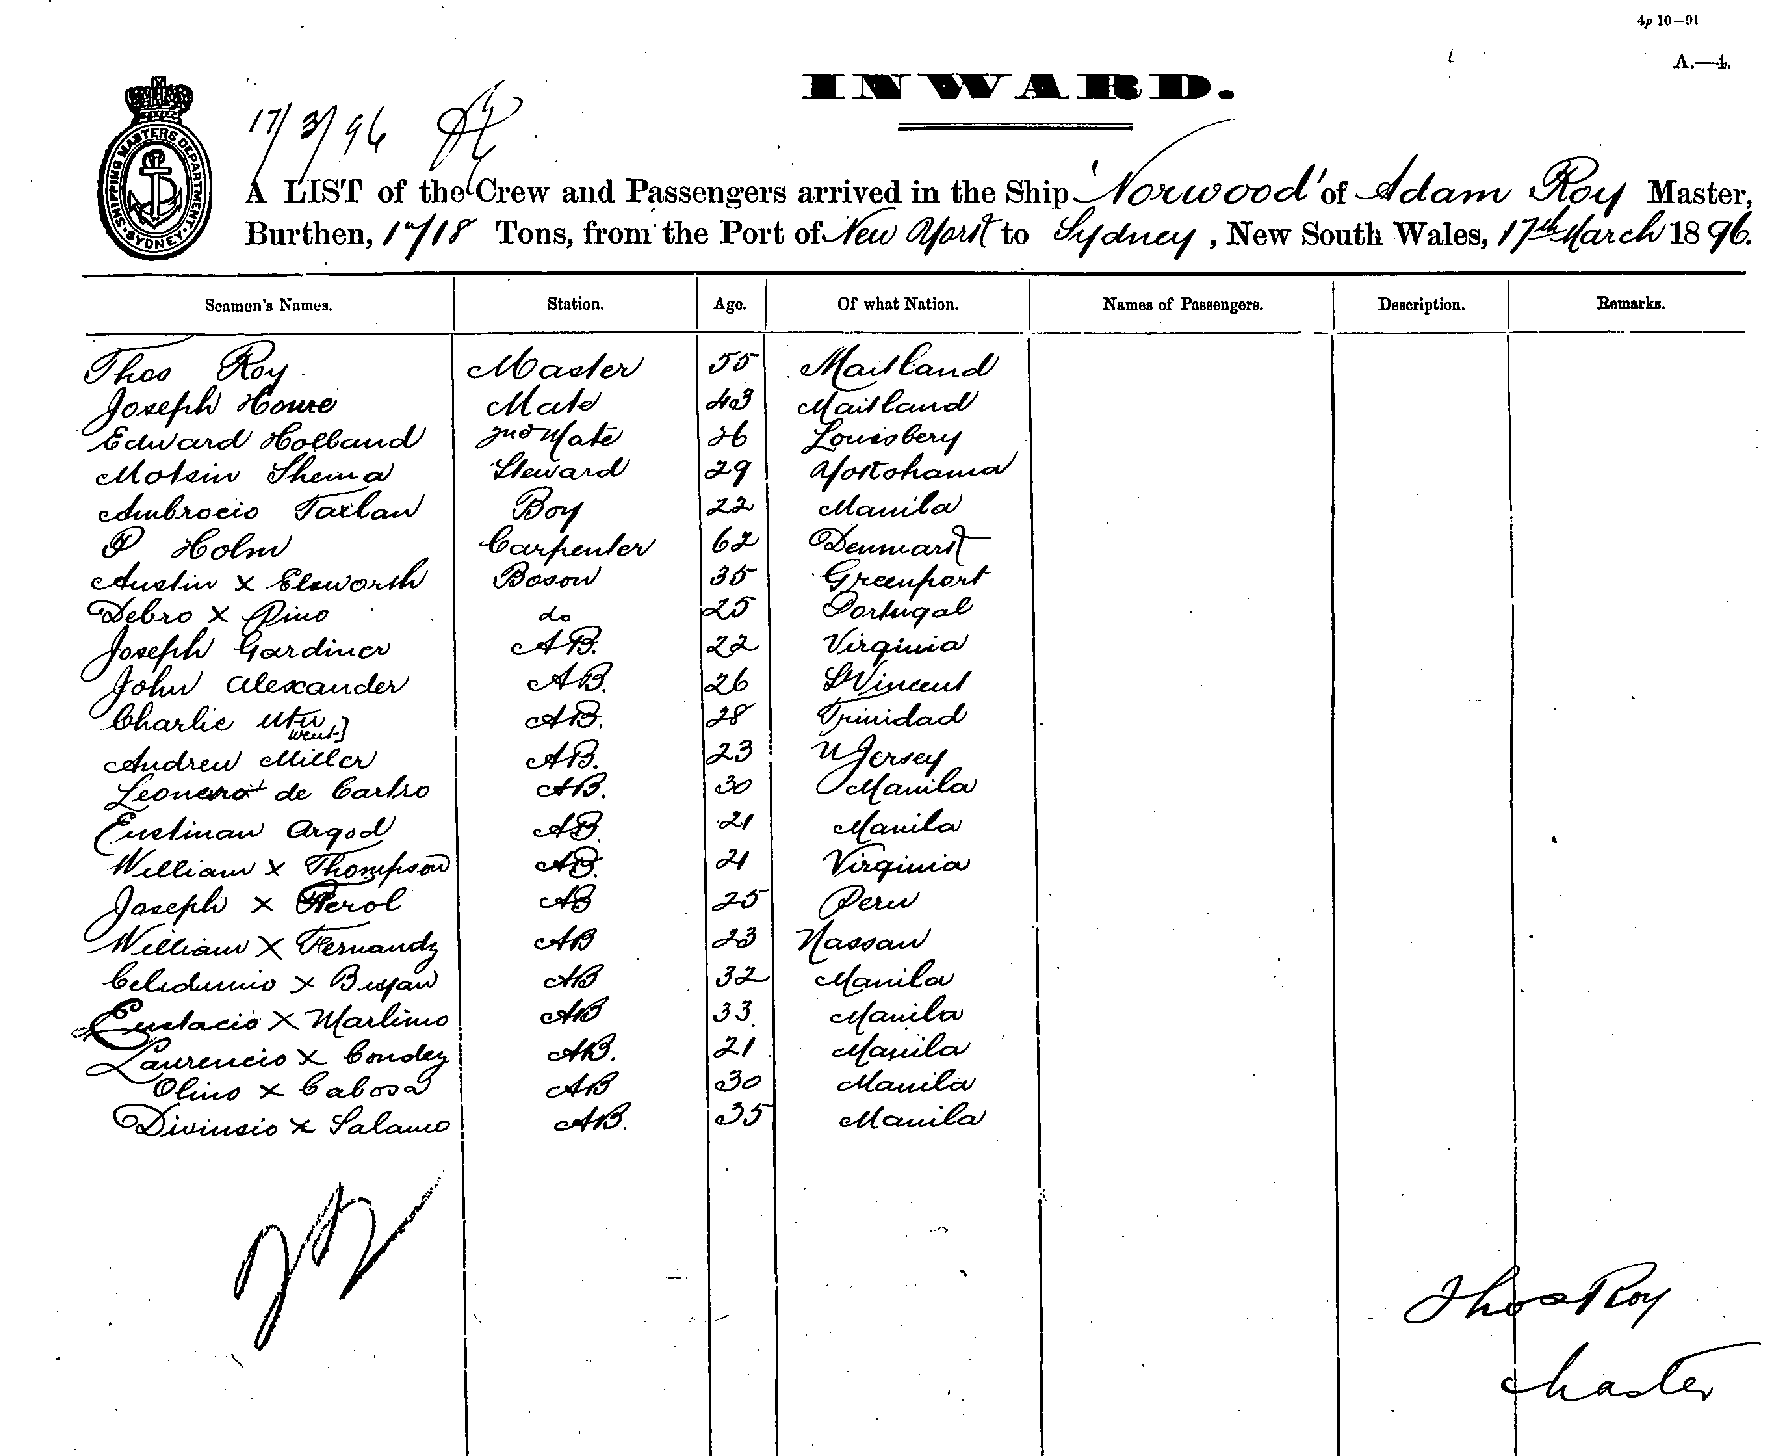 4p 10—91
A.—4.
INWARD.
SHIPPING MASTERS DEPARTMENT
SYDNEY
17/3/96
A LIST of the Crew and Passengers arrived in the Ship 'Norwood' of Adam Roy Master,
Burthen, 1718 Tons, from the Port of New York to Sydney, New South Wales, 17th March 1896.
Seamen's Names. Station. Age. Of what Nation. Names of Passengers. Description. Remarks.
Thos Roy Master 55 Maitland
Joseph Howe Mate 43 Maitland
Edward Holland 2nd Mate 26 Louisbery
Motsin Shema Steward 29 Yokohama
Ambrocio Taxlan Boy 22 Manila
P Holm Carpenter 62 Denmark
Austin x Elsworth Boson 35 Greenport
Debro x Pino do 25 Portugal
Joseph Gardiner AB. 22 Virginia
John Alexander AB. 26 St Vincent
Charlie AB. 28 Trinidad
Andrew Miller AB. 23 N Jersey
de Cartro AB. 30 Manila
Eustinan Argod AB. 21 Manila
William x Thompson AB. 21 Virginia
Joseph x Perol AB 25 Peru
William x Fernandz AB 23 Nassau
Celedunio x Buyan AB 32 Manila
Eustacio x Marlimo AB 33 Manila
Laurencio x Condez AB. 21 Manila
Olino x Cabosa AB 30 Manila
Divinsio x Salamo AB. 35 Manila
Thos Roy
Master